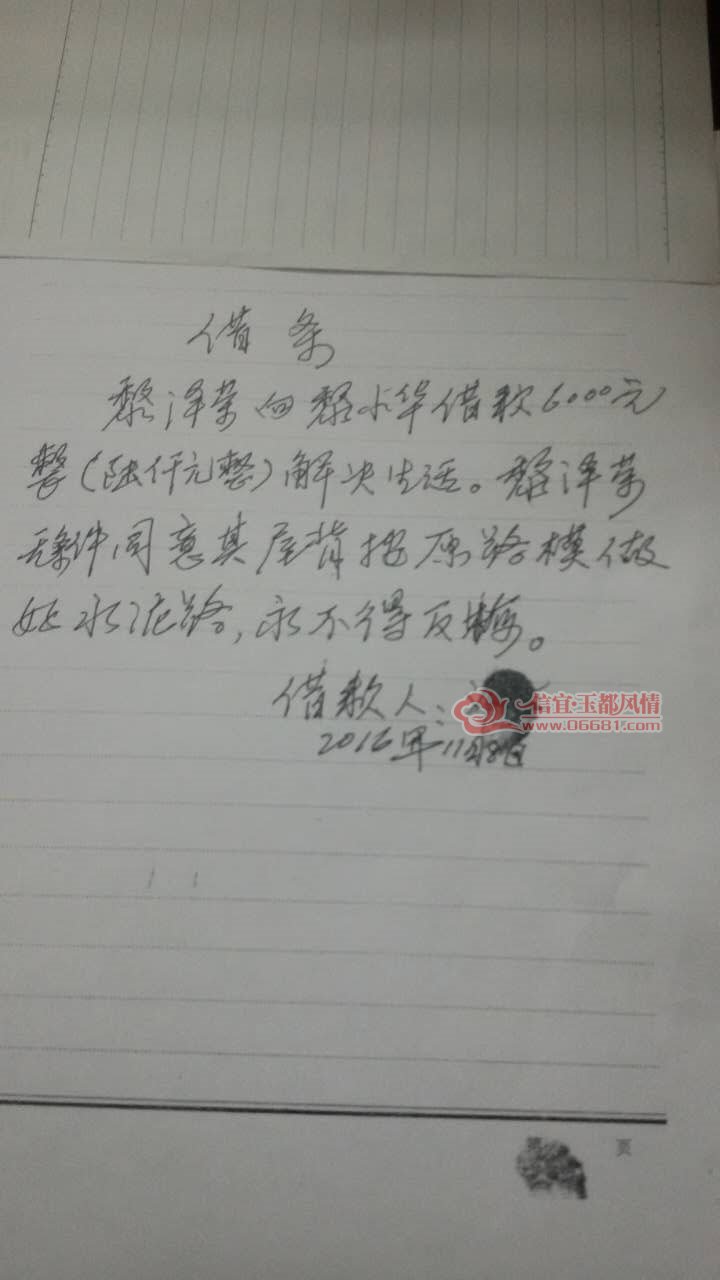 借条
黎泽荣向黎水华借款6000元
整(陆仟元整)解决生活。黎泽荣
无条件同意其屋背按原路模做
好水泥路,永不得反悔。
借款人:
2016年11月8日
信宜·玉都风情
www.06681.com
第 页